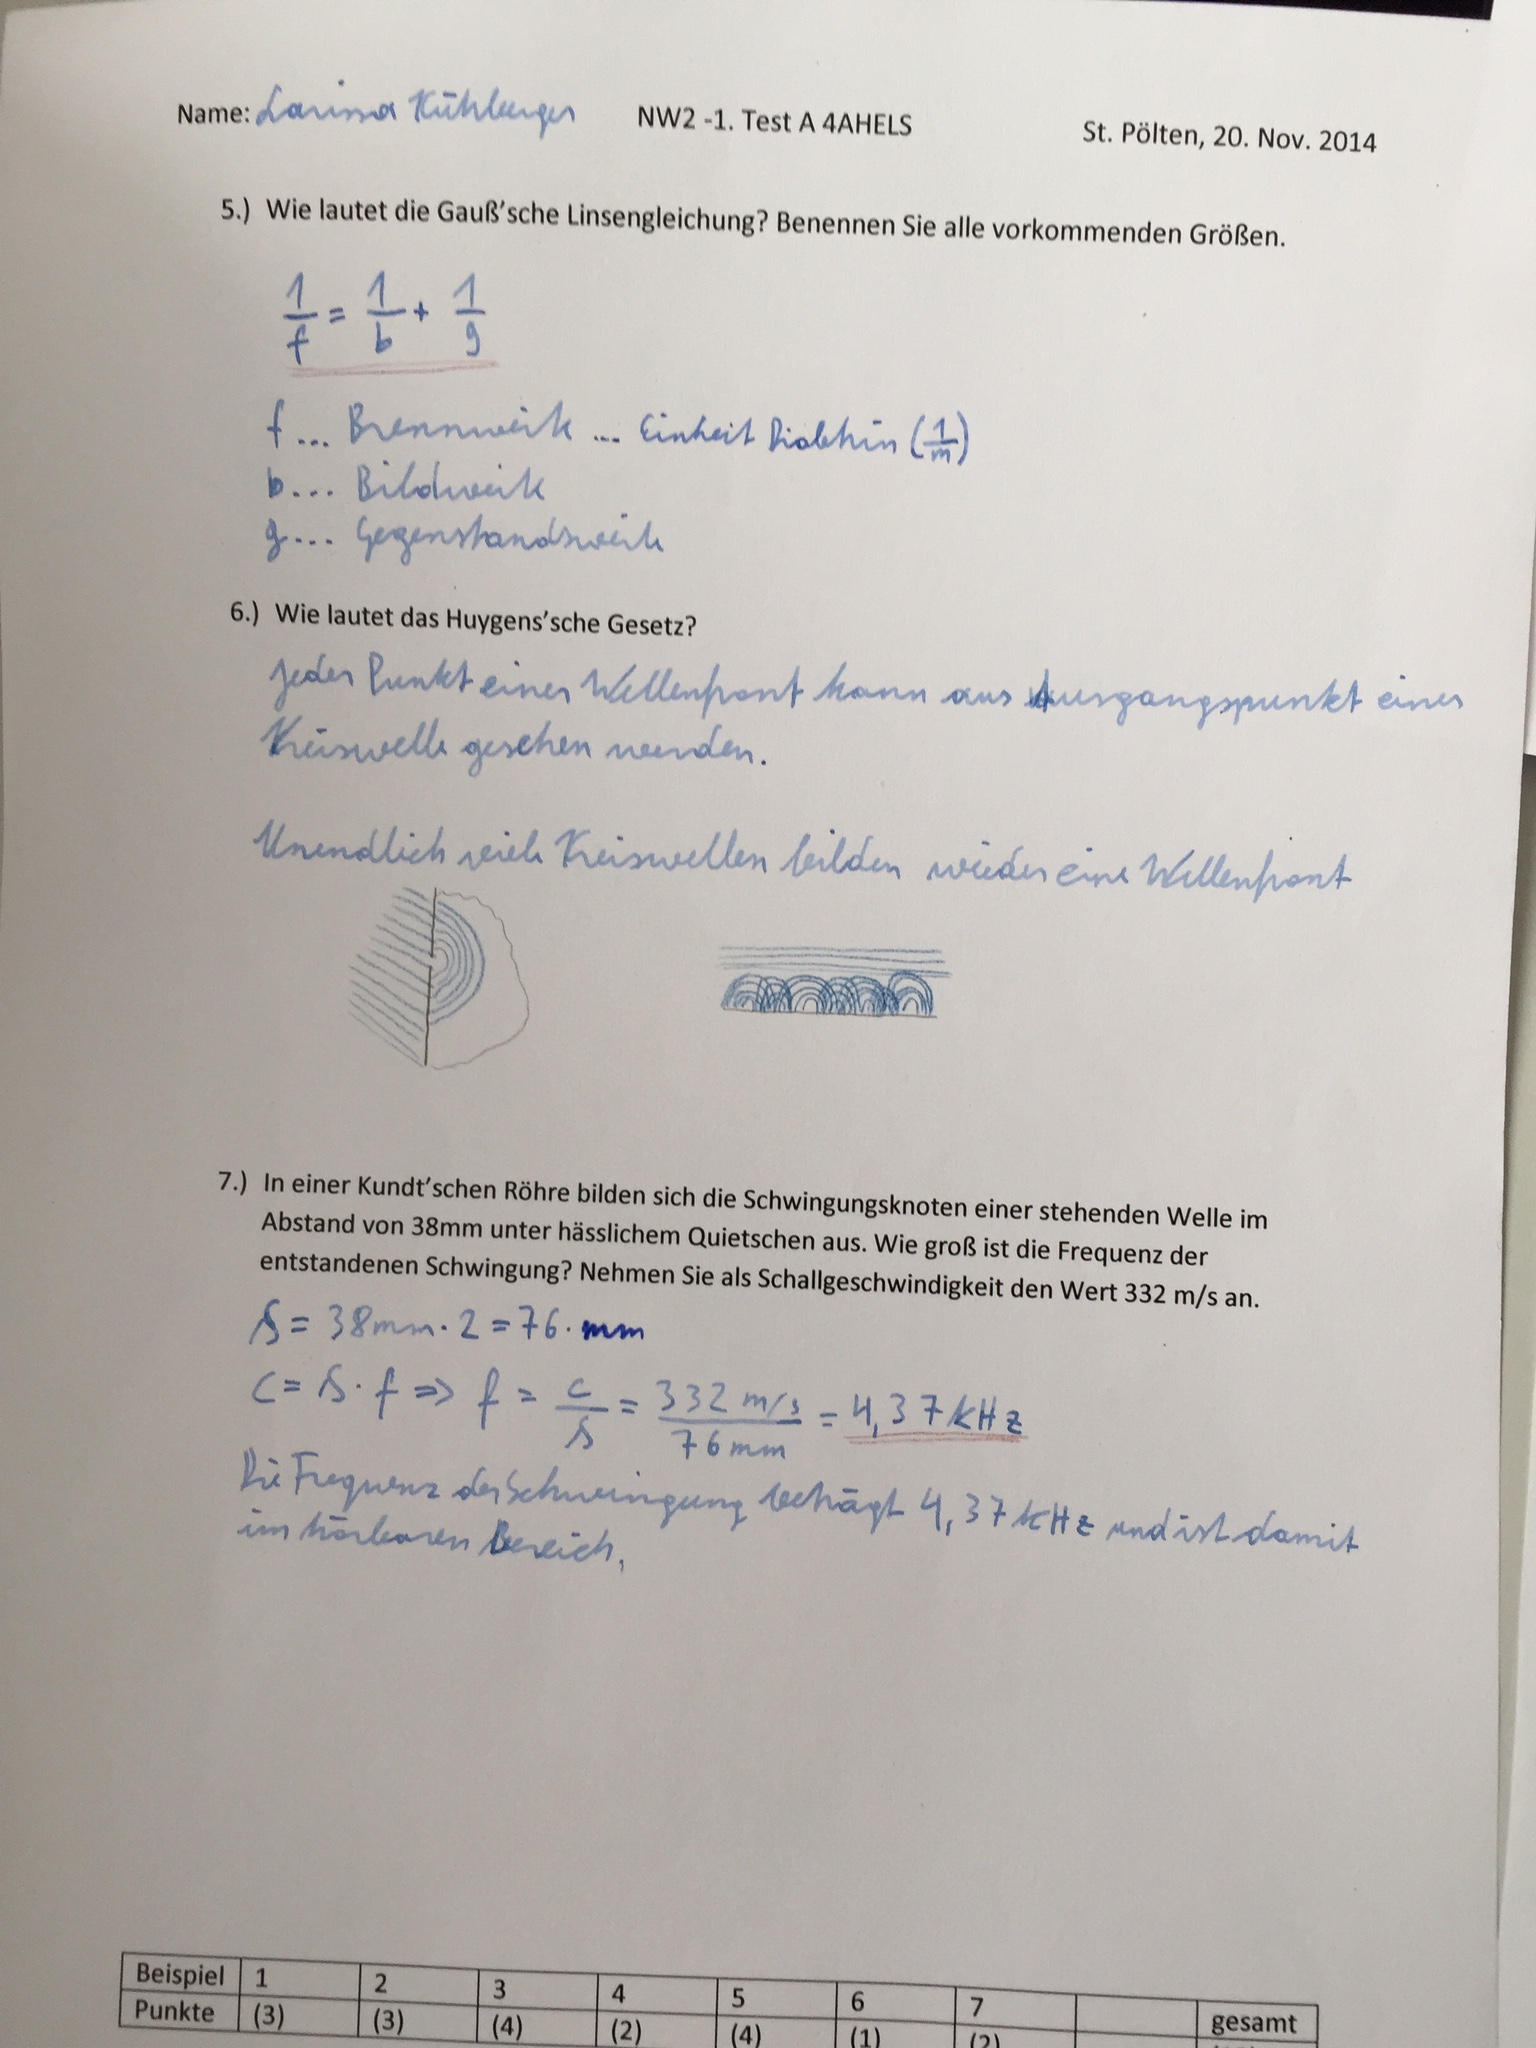 Name: Larissa Kühberger NW2 -1. Test A 4AHELS St. Pölten, 20. Nov. 2014
5.) Wie lautet die Gauß'sche Linsengleichung? Benennen Sie alle vorkommenden Größen.
1/f = 1/b + 1/g
f ... Brennweite ... Einheit (1/m)
b ... Bildweite
g ... Gegenstandsweite
6.) Wie lautet das Huygens'sche Gesetz?
Jeder Punkt einer Wellenfront kann aus Ausgangspunkt einer
Kreiswelle gesehen werden.
Unendlich viele Kreiswellen bilden wieder eine Wellenfront
7.) In einer Kundt'schen Röhre bilden sich die Schwingungsknoten einer stehenden Welle im
Abstand von 38mm unter hässlichem Quietschen aus. Wie groß ist die Frequenz der
entstandenen Schwingung? Nehmen Sie als Schallgeschwindigkeit den Wert 332 m/s an.
λ = 38mm · 2 = 76 · mm
c = λ · f => f = c/λ = 332 m/s / 76mm = 4,37kHz
Die Frequenz der Schwingung beträgt 4,37kHz und ist damit
im hörbaren Bereich.
Beispiel 1 2 3 4 5 6 7 gesamt
Punkte (3) (3) (4) (2) (4) (1) (2)